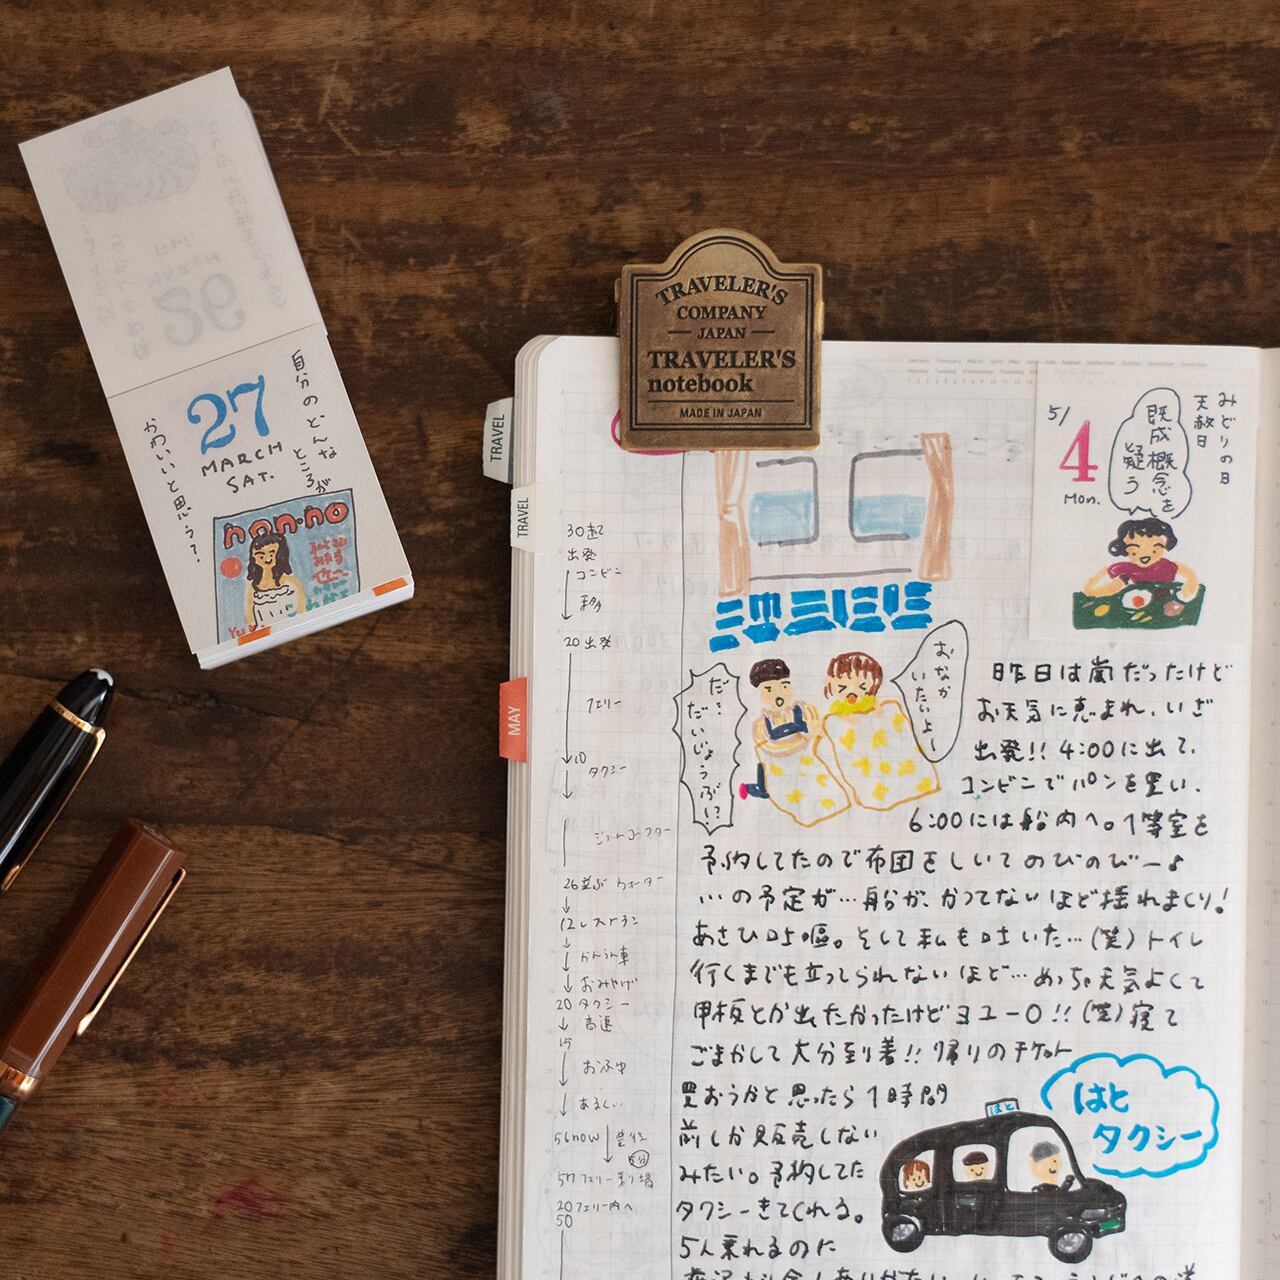 27
MARCH
SAT.
自分のどんな
ところが
かわいいと思う?
non-no
TRAVELER'S
COMPANY
JAPAN
TRAVELER'S
notebook
MADE IN JAPAN
TRAVEL
TRAVEL
MAY
30起
出発
コンビニ
20 出発
フェリー
10
タクシー
レストラン
かんらん車
おみやげ
20 タクシー
高速
15
あるく
フェリー乗り場
20 フェリー内へ
50
みどりの日
天赦日
5/
4
Mon.
既成概念を
疑う
おなか
いたいよー
だ、
だいじょうぶ!?
昨日は嵐だったけど
お天気に恵まれ、いざ
出発!! 4:00に出て、
コンビニでパンを買い、
6:00には船内へ。1等室を
予約してたので布団をしいてのびのびー♪
…の予定が…船が、かつてないほど揺れまくり!
あさひ嘔吐。そして私も吐いた…(笑)トイレ
行くまでも立ってられないほど…めっちゃ天気よくて
甲板とか出たかったけどヨユー0!!(笑)寝て
ごまかして大分到着!! 帰りのチケット
買おうかと思ったら1時間
前しか販売しない
みたい。予約してた
タクシーきてくれる。
5人乗れるのに
はと
はと
タクシー